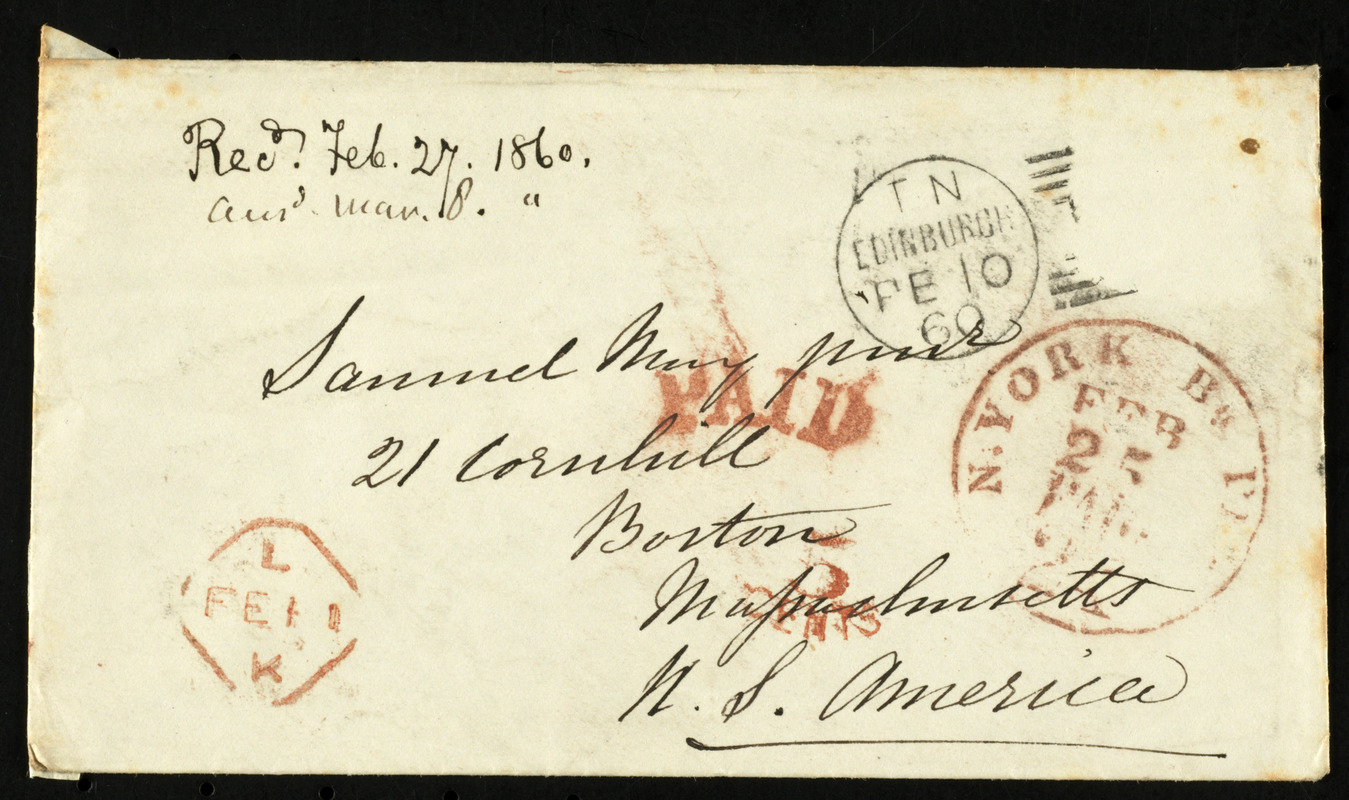 Recd. Feb. 27. 1860.
ansd. Mar. 8. "
TN
EDINBURGH
FE 10
60
Samuel May junr
PAID
21 Cornhill
Boston
Massachusetts
U. S. America
N. YORK Br P
FEB
25
PAID
3
CENTS
L
FE 11
K